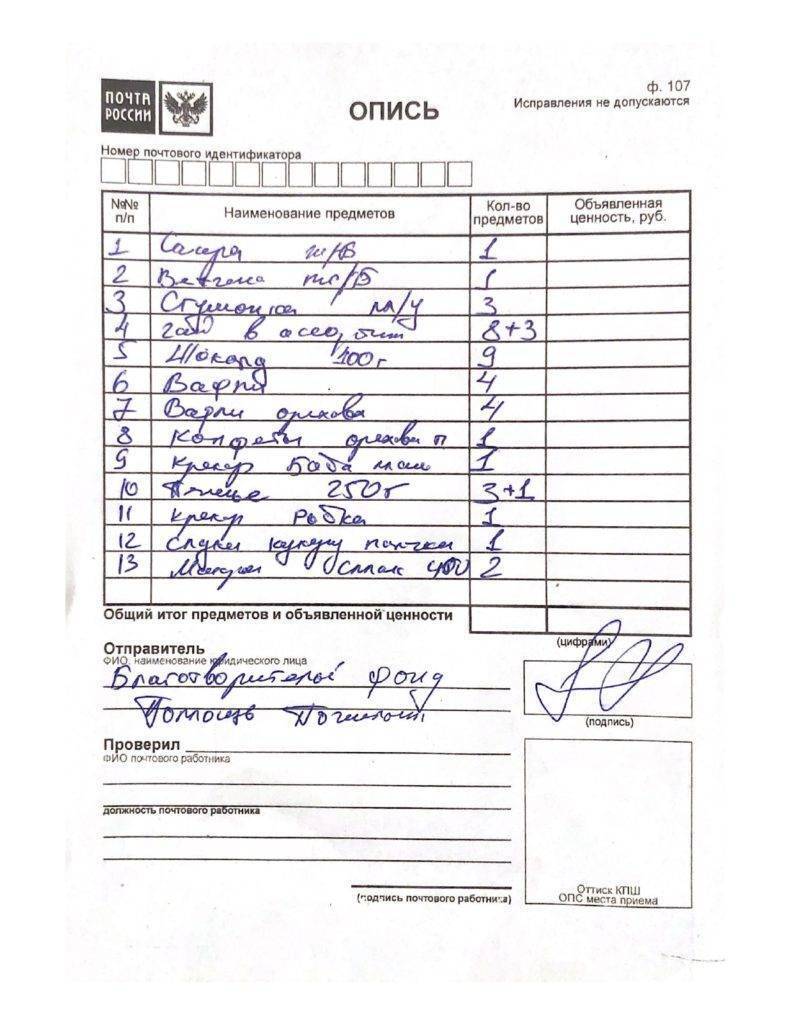 ПОЧТА РОССИИ
ф. 107
Исправления не допускаются
ОПИСЬ
Номер почтового идентификатора
№№ п/п Наименование предметов Кол-во предметов Объявленная ценность, руб.
1 Сайра ж/б 1
2 Ветчина ж/б 1
3 Сгущенка м/у 3
4 в ассортим 8+3
5 Шоколад 100г 9
6 Вафли 4
7 Вафли орехова 4
8 Конфеты орехова п 1
9 Крекер 1
10 Печенье 250г 3+1
11 Крекер Рыбка 1
12 кукуру палочки 1
13 400 2
Общий итог предметов и объявленной ценности
(цифрами)
Отправитель
ФИО, наименование юридического лица
Благотворительный фонд
Помощь Пожилым
(подпись)
Проверил
ФИО почтового работника
должность почтового работника
(подпись почтового работника)
Оттиск КПШ
ОПС места приема